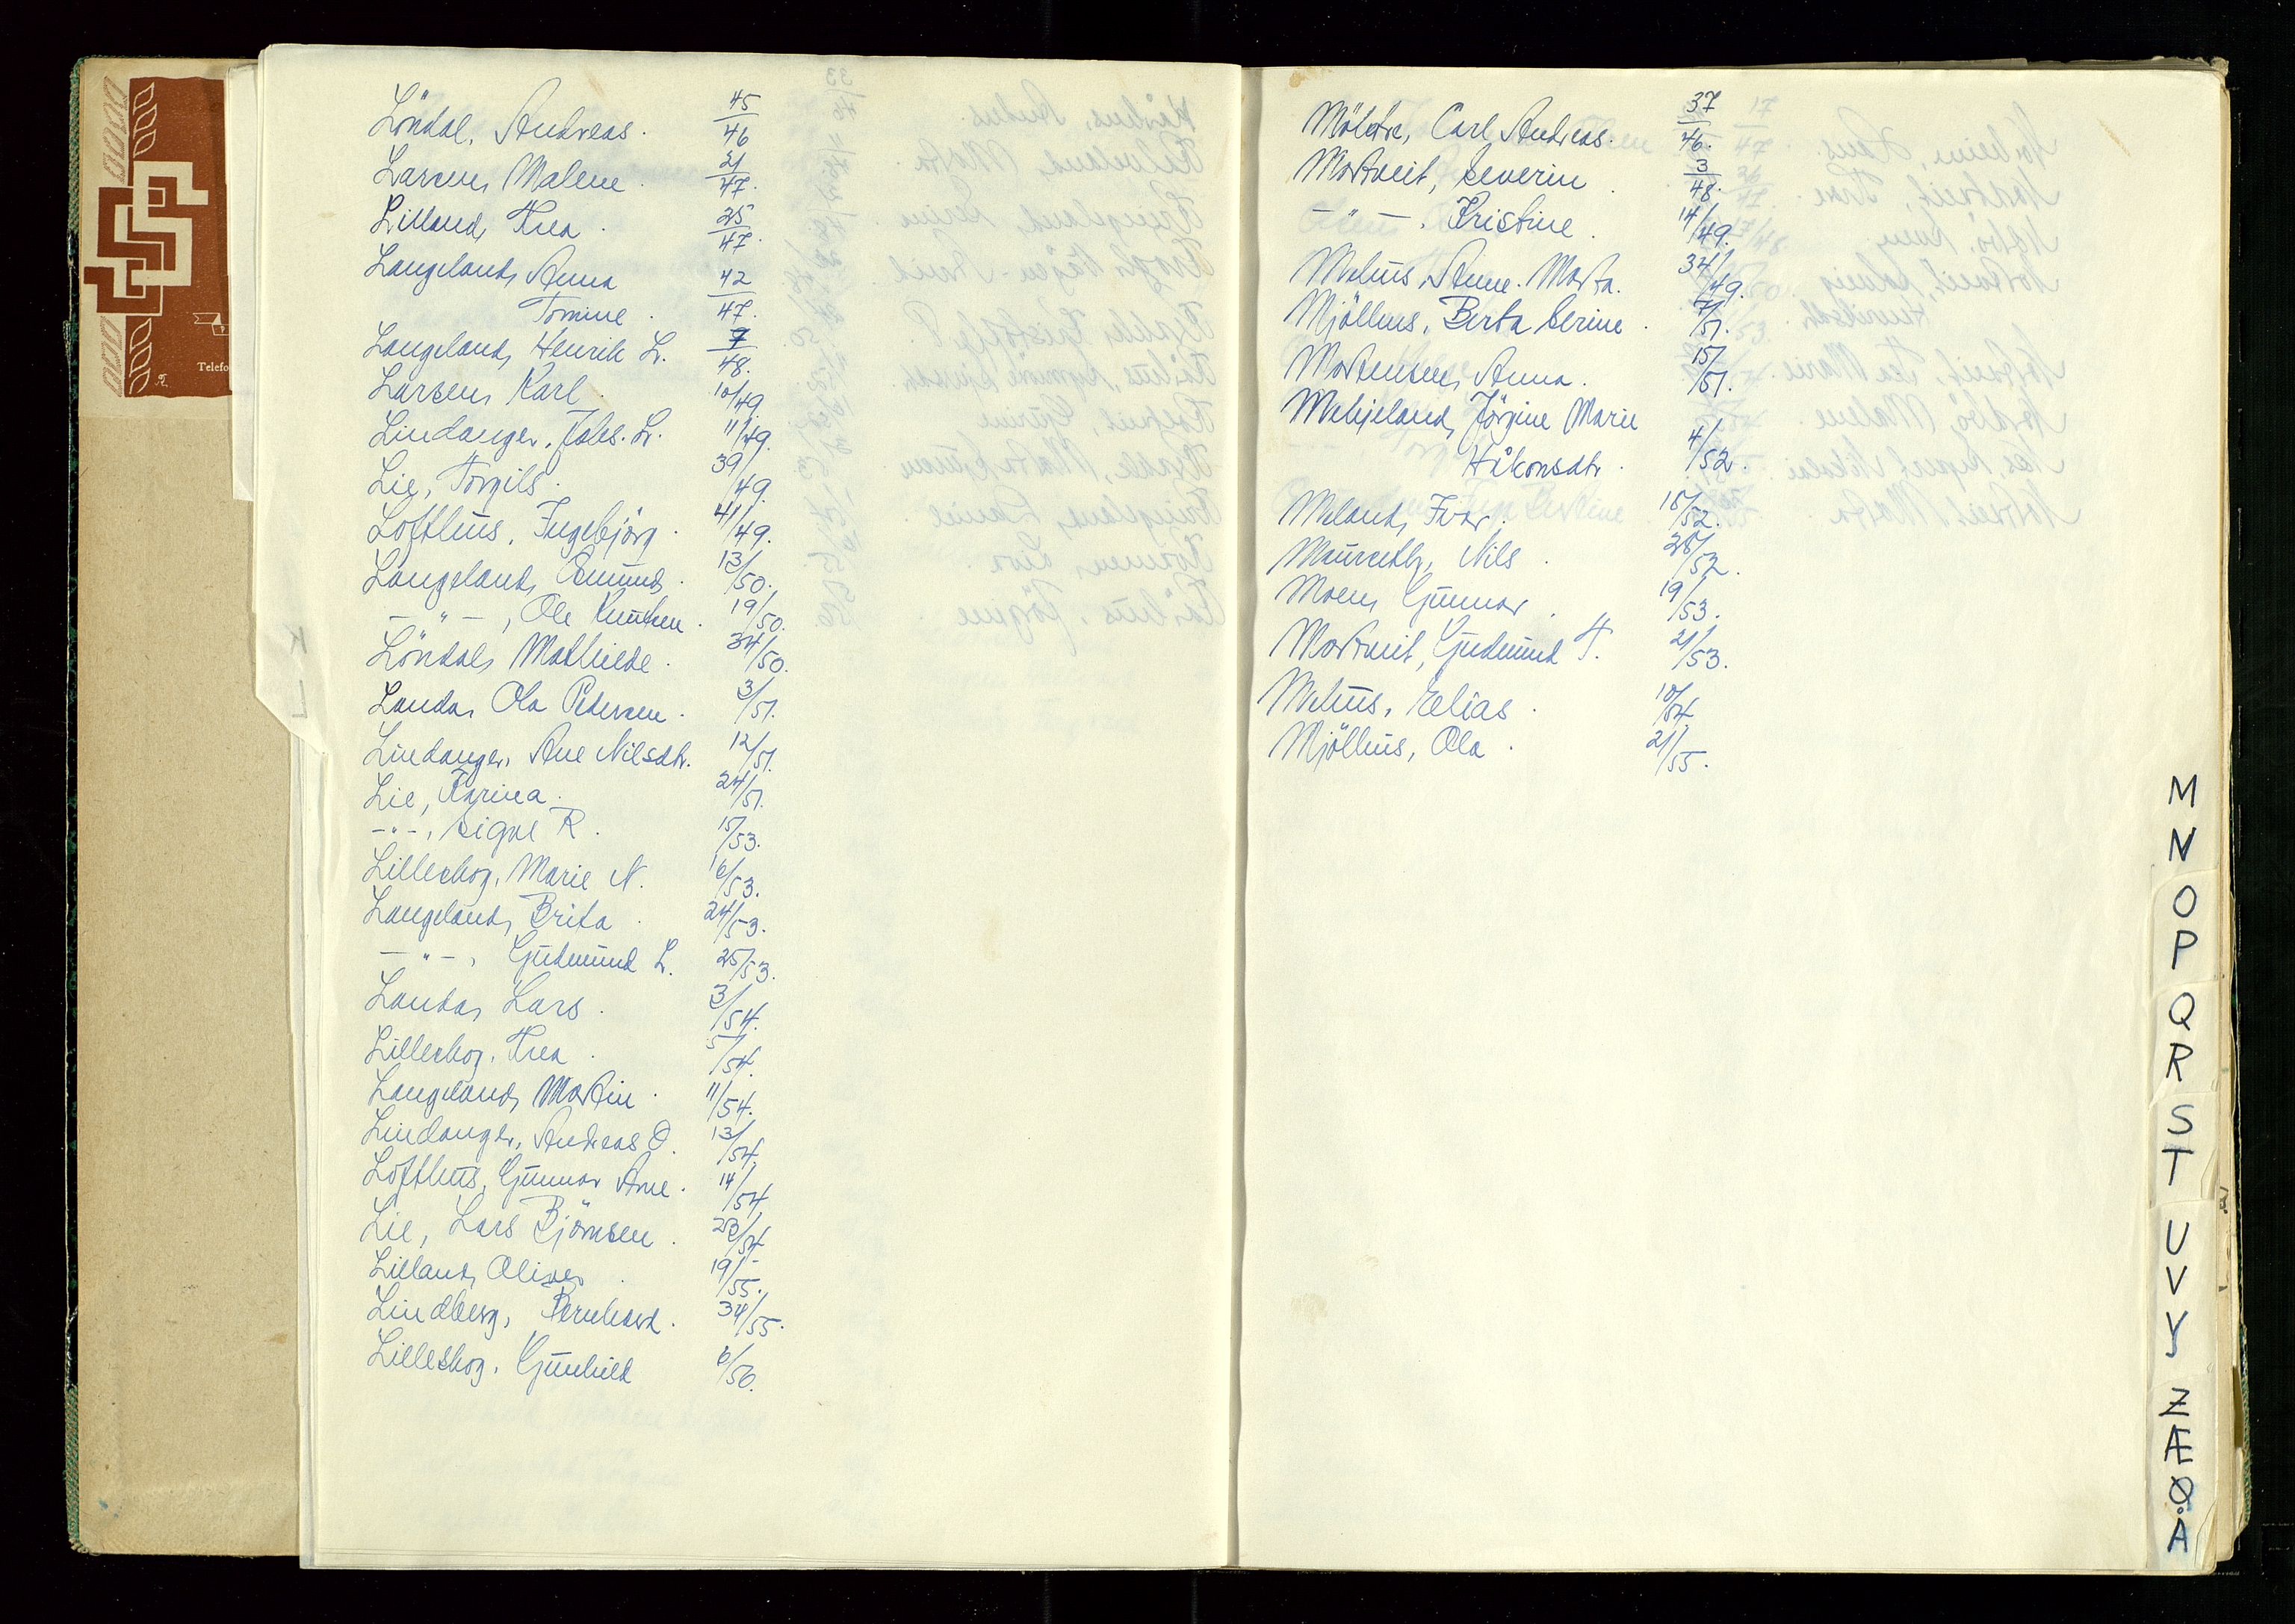 Löndal, Andreas. 45/46
Larsen, Malene. 21/47.
Lilland, Thea. 25/47.
Langeland, Anna 42/47.
Tomine.
Langeland, Henrik L. 7/48.
Larsen, Karl. 10/49.
Lindanger, Johs. L. 11/49.
Lie, Torgils. 39/49.
Lofthus, Ingebjörg. 41/49.
Langeland, Åmund. 13/50.
- " -, Ole Knutsen. 19/50.
Löndal, Mathilde. 34/50.
Landa, Ola Pedersen. 3/51.
Lindanger, Ane Nilsdtr. 12/51.
Lie, Karina. 24/51.
- " -, Signe R. 15/53.
Lilleskog, Marie N. 16/53.
Langeland, Brita. 24/53.
- " -, Gudmund L. 25/53.
Landa, Lars. 3/54.
Lilleskog, Thea. 5/54.
Langeland, Martin. 11/54.
Lindanger, Andreas O. 13/54.
Lofthus, Gunnar Arne. 14/54.
Lie, Lars Björnsen. 23/54
Lilland, Oliver. 19/55.
Lindberg, Bernhard. 34/55.
Lilleskog, Gunhild 6/56.
Carl Andreas. 37/46.
Mortveit, Severin. 3/48.
- " -, Kristine. 14/49.
Mehus, Anne Marta. 34/49.
Mjölhus, Berta Serine. 7/51.
Mortensen, Anna. 15/51.
Jörgine Marie
Håkonsdtr. 4/52.
Meland, Ivar. 15/52.
Nils. 28/52.
Moen, Gunnar. 19/53.
Mortveit, Gudmund T. 21/53.
Mehus, Elias. 10/54.
Mjölhus, Ola. 21/55.
M
N
O
P
Q
R
S
T
U
V
Y
Z
Æ
Ø
Å
K
L
Telefo